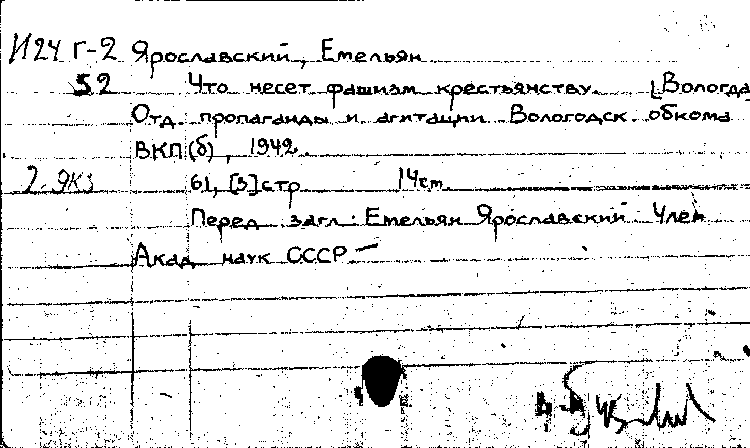 И24 Г-2 Ярославский, Емельян
52 Что несет фашизм крестьянству. [Вологда
Отд. пропаганды и агитации Вологодск. обкома
ВКП(б), 1942.
2 экз 61, [3] стр 14 см.
Перед загл.: Емельян Ярославский Член
Акад наук СССР —